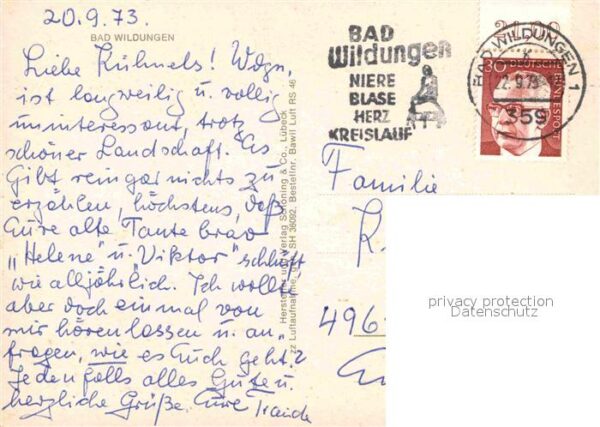 20.9.73.
BAD WILDUNGEN
Liebe Kühnels! Wdgn.
ist langweilig u. völlig
uninteressant, trotz
schöner Landschaft. Es
gibt rein gar nichts zu
erzählen, höchstens, daß
Eure alte Tante brav
„Helene" u. „Viktor" schluft
wie alljährlich. Ich wollte
aber doch einmal von
mir hören lassen u. an-
fragen, wie es Euch geht?
Jedenfalls alles Gute u.
herzliche Grüße. Eure Traude
Hersteller und Verlag Schöning & Co., Lübeck
Luftaufnahme, SH 36092, Bestellnr. Bawil Luft RS 46
BAD
Wildungen
NIERE
BLASE
HERZ
KREISLAUF
BAD WILDUNGEN 1
359
30
DEUTSCHE BUNDESPOST
Familie
K.
496
privacy protection
Datenschutz